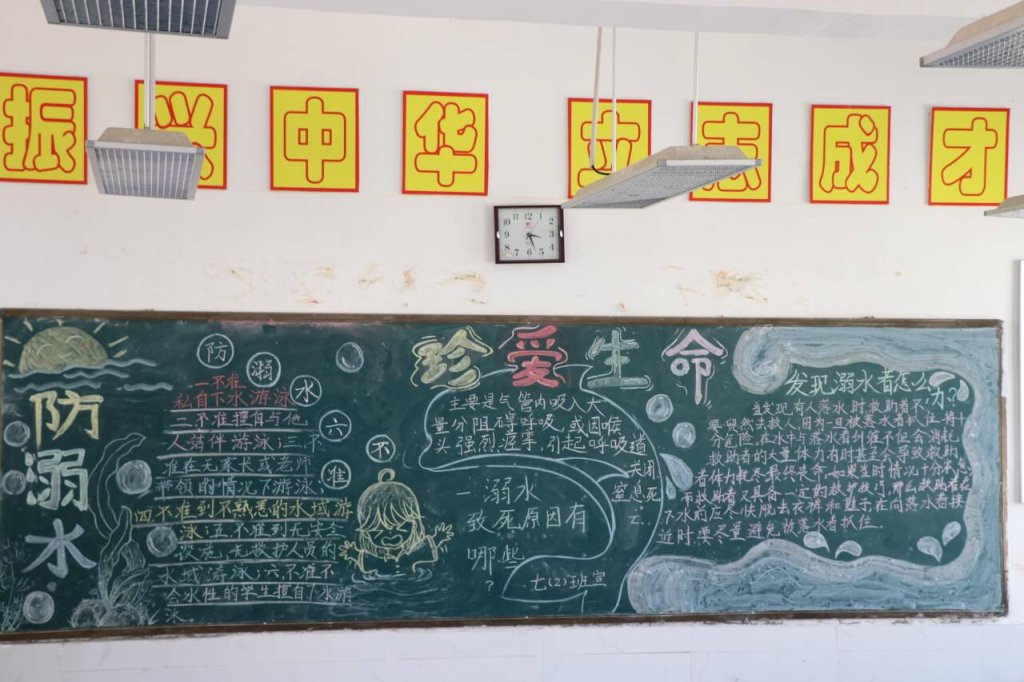 振兴中华 立志成才
12
11
1
10
2
9
3
8
4
7
5
6
防溺水
防溺水六不准
一不准
私自下水游泳
二不准擅自与他
人结伴游泳;三不
准在无家长或老师
带领的情况下游泳
四不准到不熟悉的水域游
泳;五不准到无安全
设施、无救护人员的
水域游泳;六不准不
会水性的学生擅自下水游
泳.
珍爱生命
主要是气管内吸入大
量分阻碍呼吸,或因喉
头强烈痉挛,引起呼吸道
关闭
窒息死
亡.
一溺水
致死原因有
哪些
?
七(2)班宣
发现溺水者怎么
当发现有人落水时救助者不
要贸然去救人,因为一旦被落水者抓住将十
分危险,在水中与落水者纠缠不但会消耗
救助者的大量体力有时甚至会导致救助
者体力耗尽最终丧命.如果当时情况十分
救助者又具备一定的救护技巧,那么救助者
下水前应尽快脱去衣裤和鞋子在向落水者接
近时要尽量避免被落水者抓住.